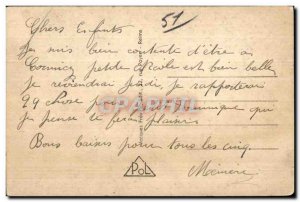 51
Chers Enfants
Je suis bien contente d'être à
petite Nicole est bien belle
je reviendrai jeudi, je rapporterai
qq chose pour que
je pense te fera plaisir
Bons baisers pour tous les cinq
Mémère
POL